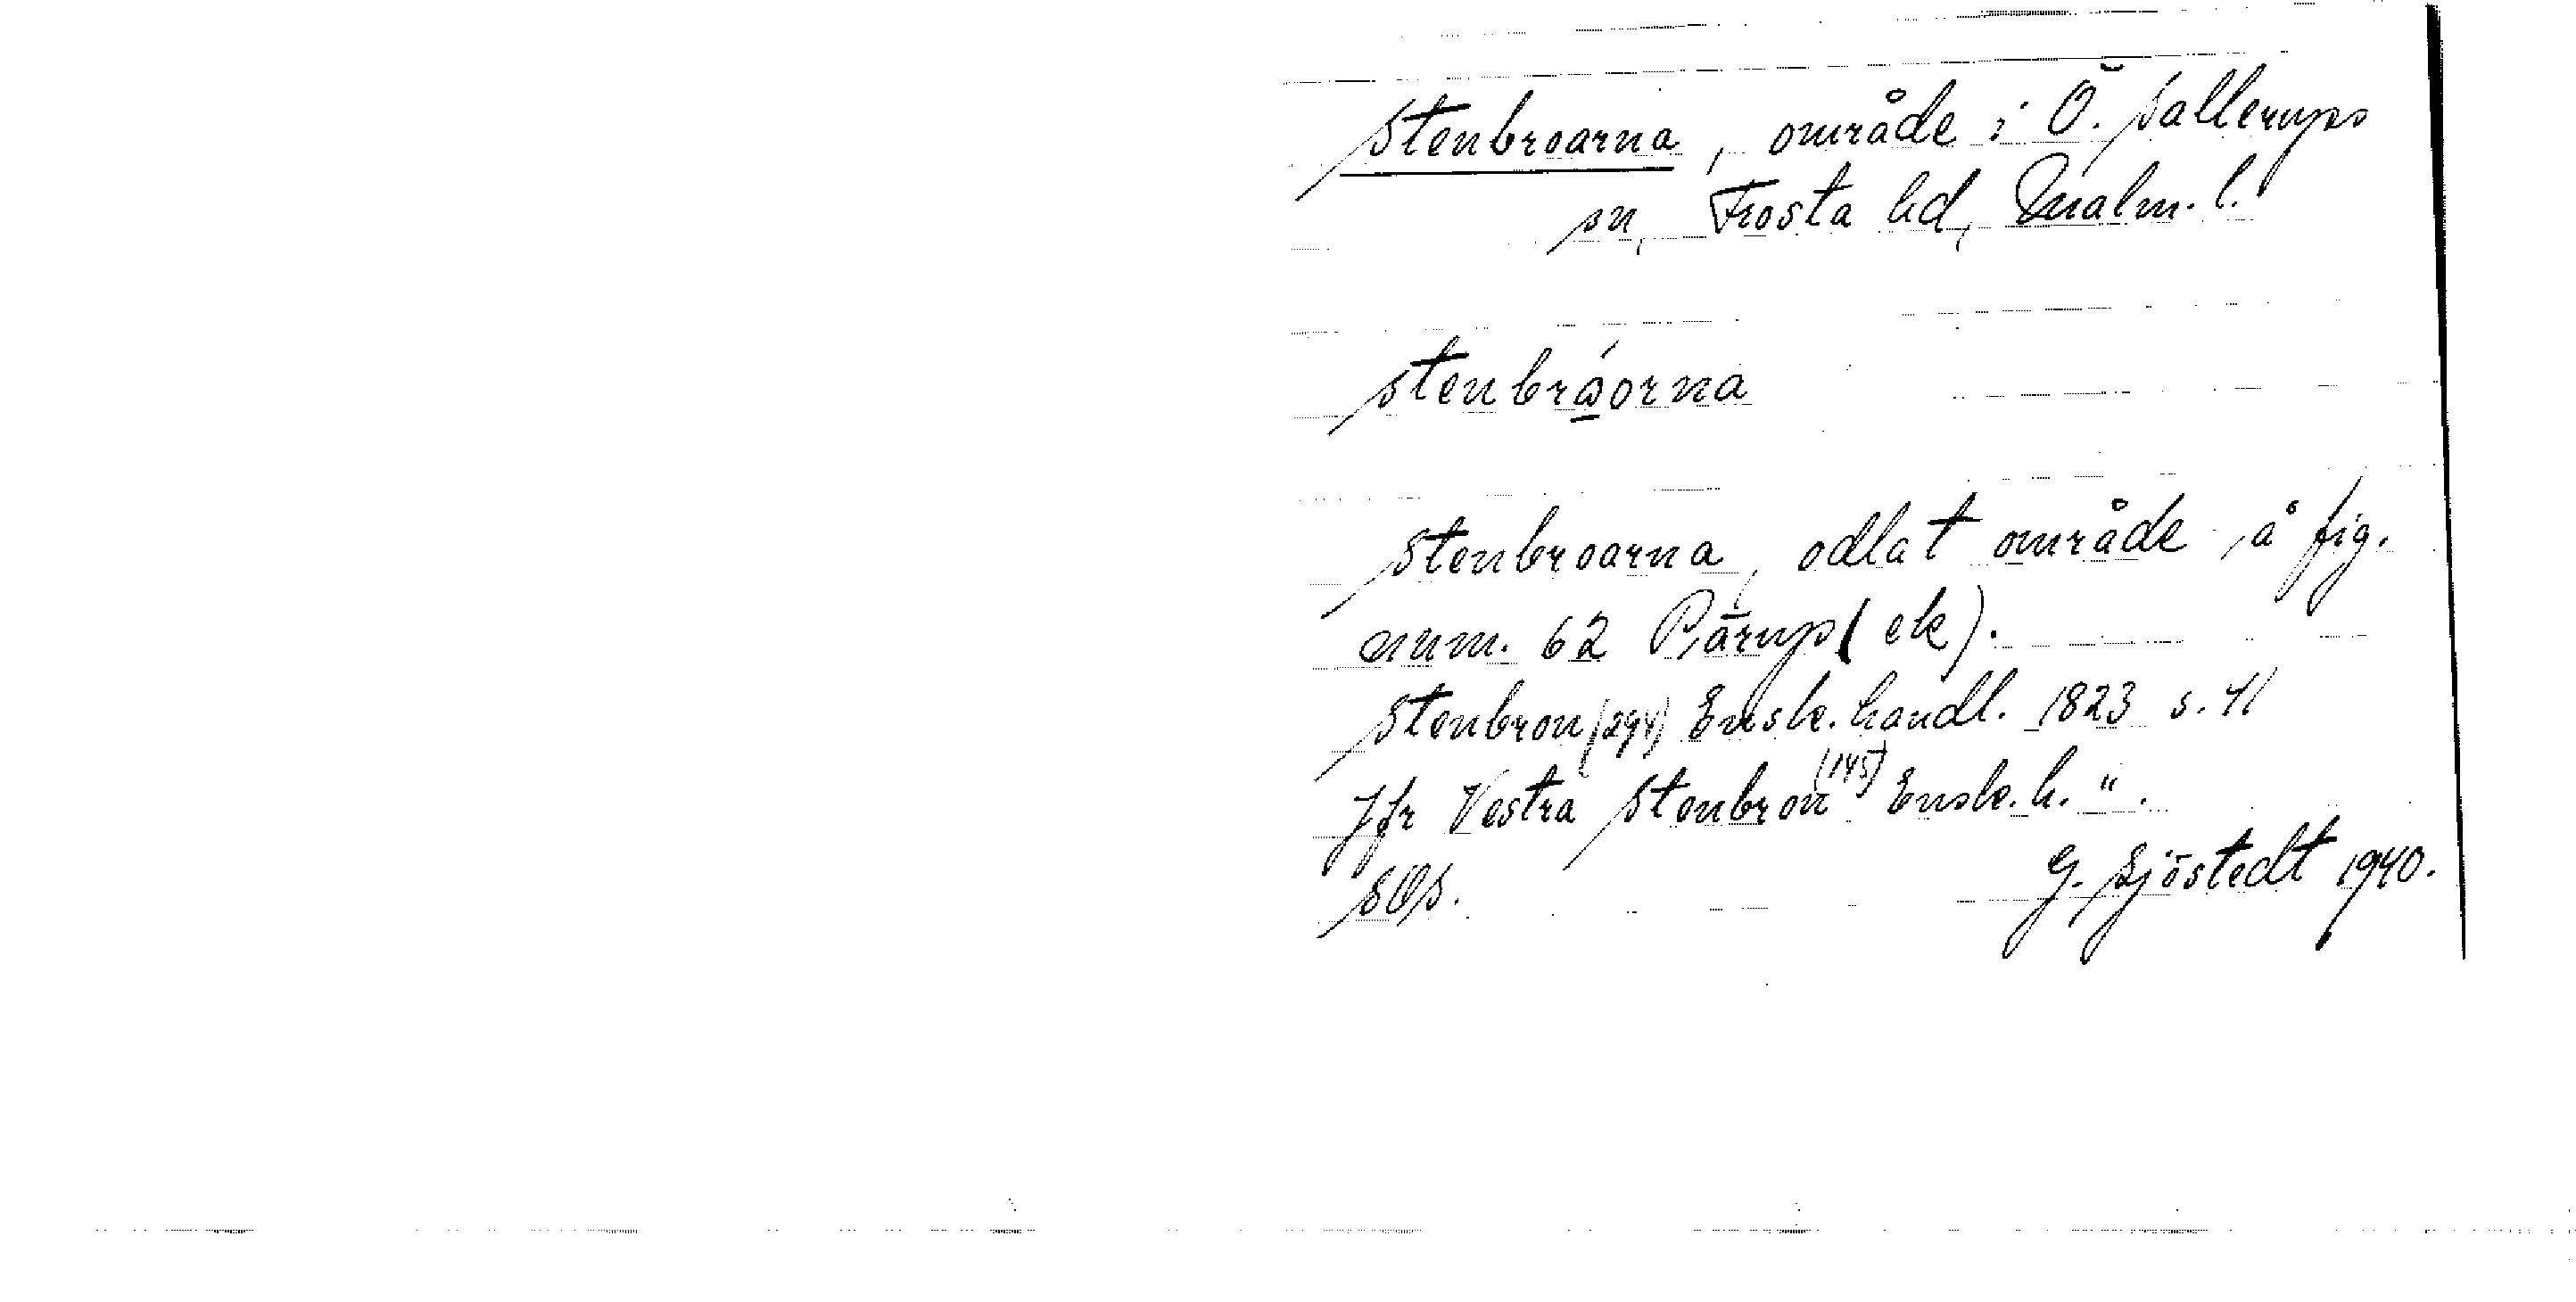 Stenbroarna, område i Ö. Sallerups
sn, Frosta hd, Malm. l.
stenbråorna
Stenbroarna, odlat område, å fig.
num. 62 Pärup (ek).
Stenbron (294) Ensk. handl. 1823 s. 41
Jfr Vestra Stenbron (145) Ensk. h. ".
SOS. G. Sjöstedt 1940.